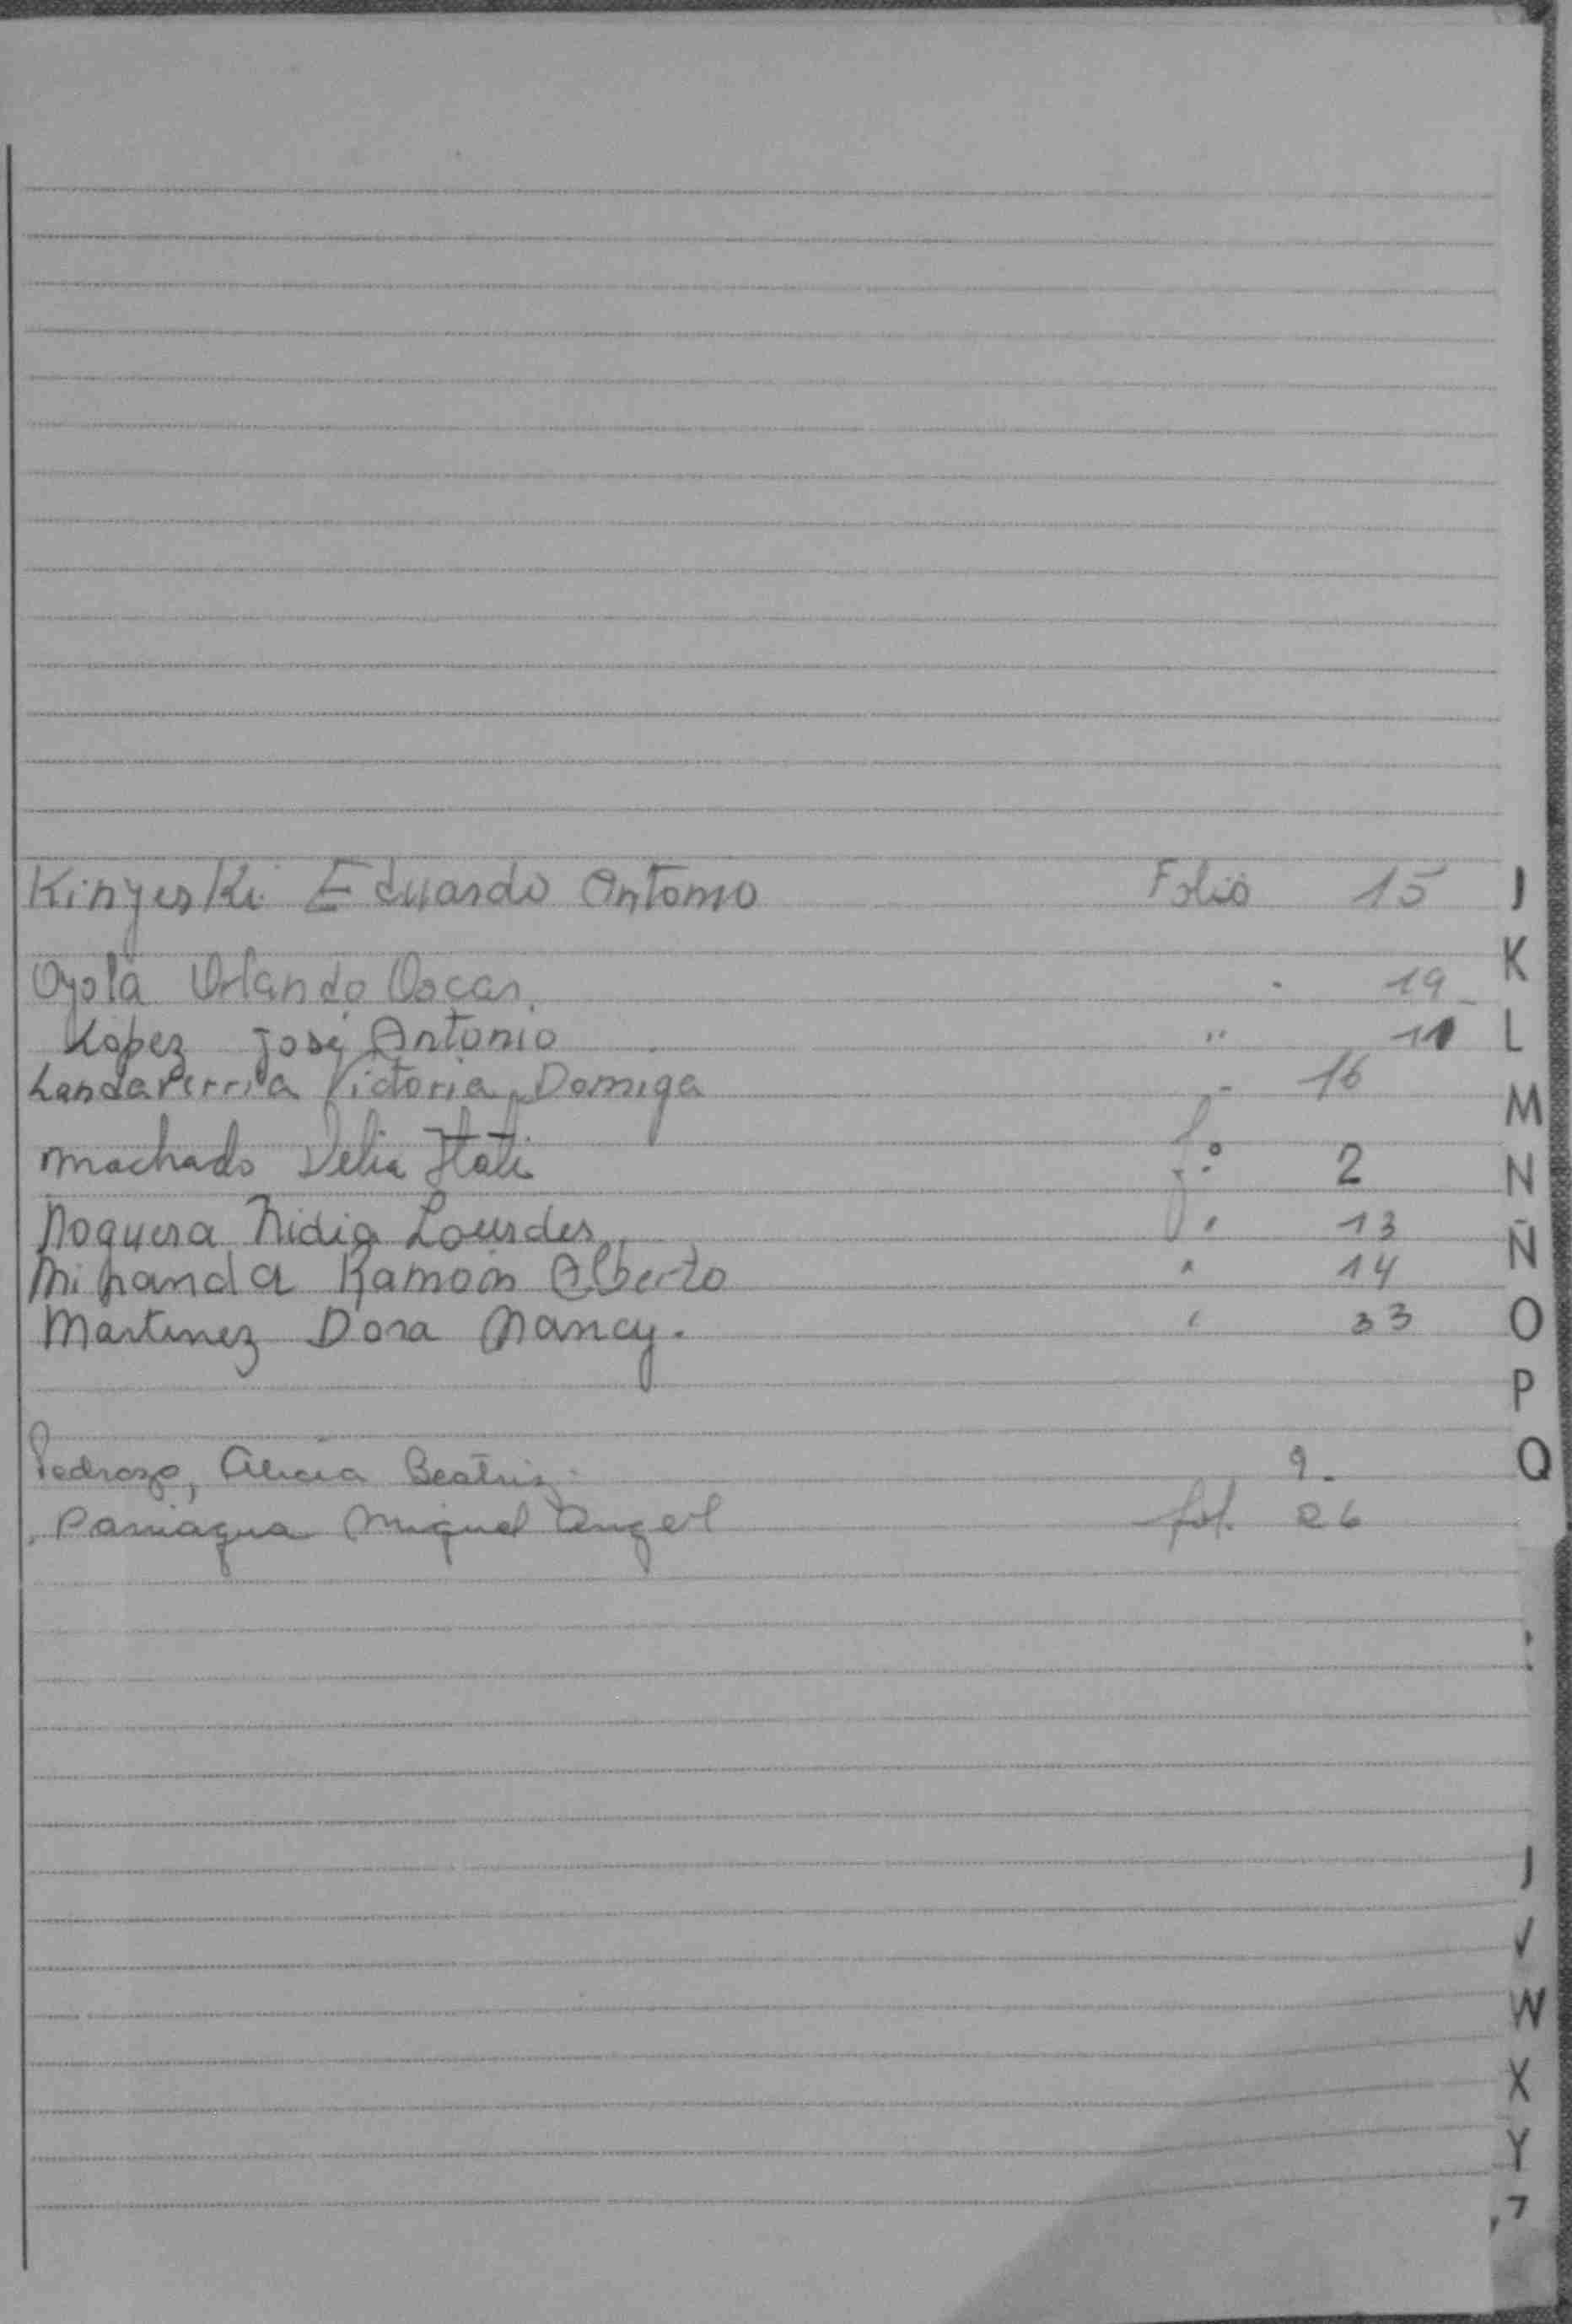 Kinyeski Eduardo Antonio Folio 15 J
K
Oyola Orlando Oscar. " 19
Lopez José Antonio " 11 L
Landaverria Victoria Domiga " 16
M
Machado Delia Itati fº 2 N
Noguera Nidia Lourdes " 13
Ñ
Miranda Ramón Alberto " 14
Martinez Dora Nancy. " 33 O
P
Pedrozo, Alicia Beatriz 9. Q
Paniagua Miguel Angel fol. 26
V
W
X
Y